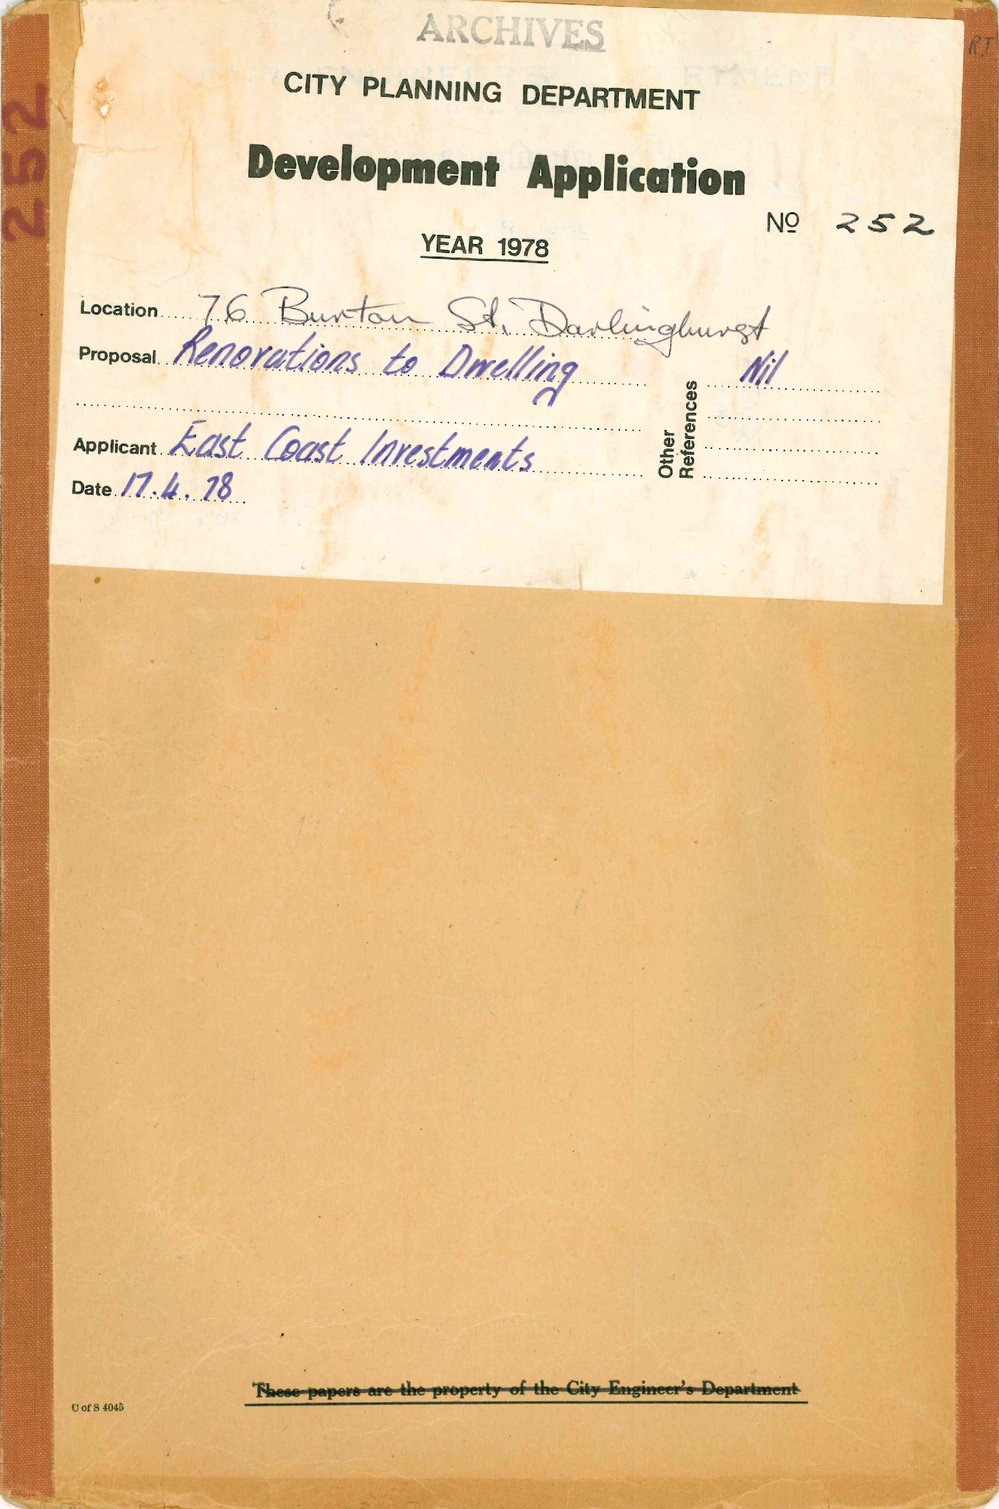 ARCHIVES
RJ
CITY PLANNING DEPARTMENT
Development Application
252
Nº 252
YEAR 1978
Location 76 Burton St. Darlinghurst
Proposal Renovations to Dwelling
Nil
Other References
Applicant East Coast Investments
Date 17.4.78
These papers are the property of the City Engineer's Department
C of S 4045